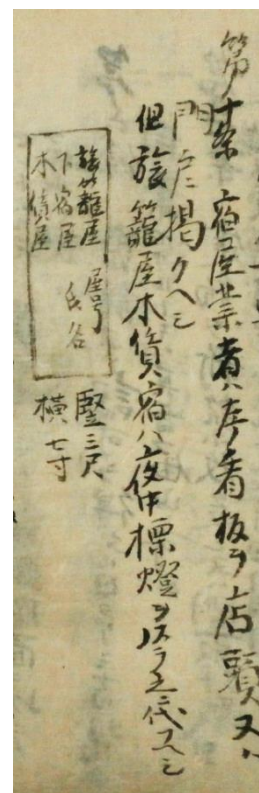 第十条 宿屋業者ハ左ノ看板ヲ店頭又ハ
門戸ニ掲クヘシ
但旅籠屋木賃宿ハ夜中標燈ヲ以テ之ニ代ユヘシ
旅籠屋
下宿屋 屋号 氏名
木賃屋
竪三尺
横七寸